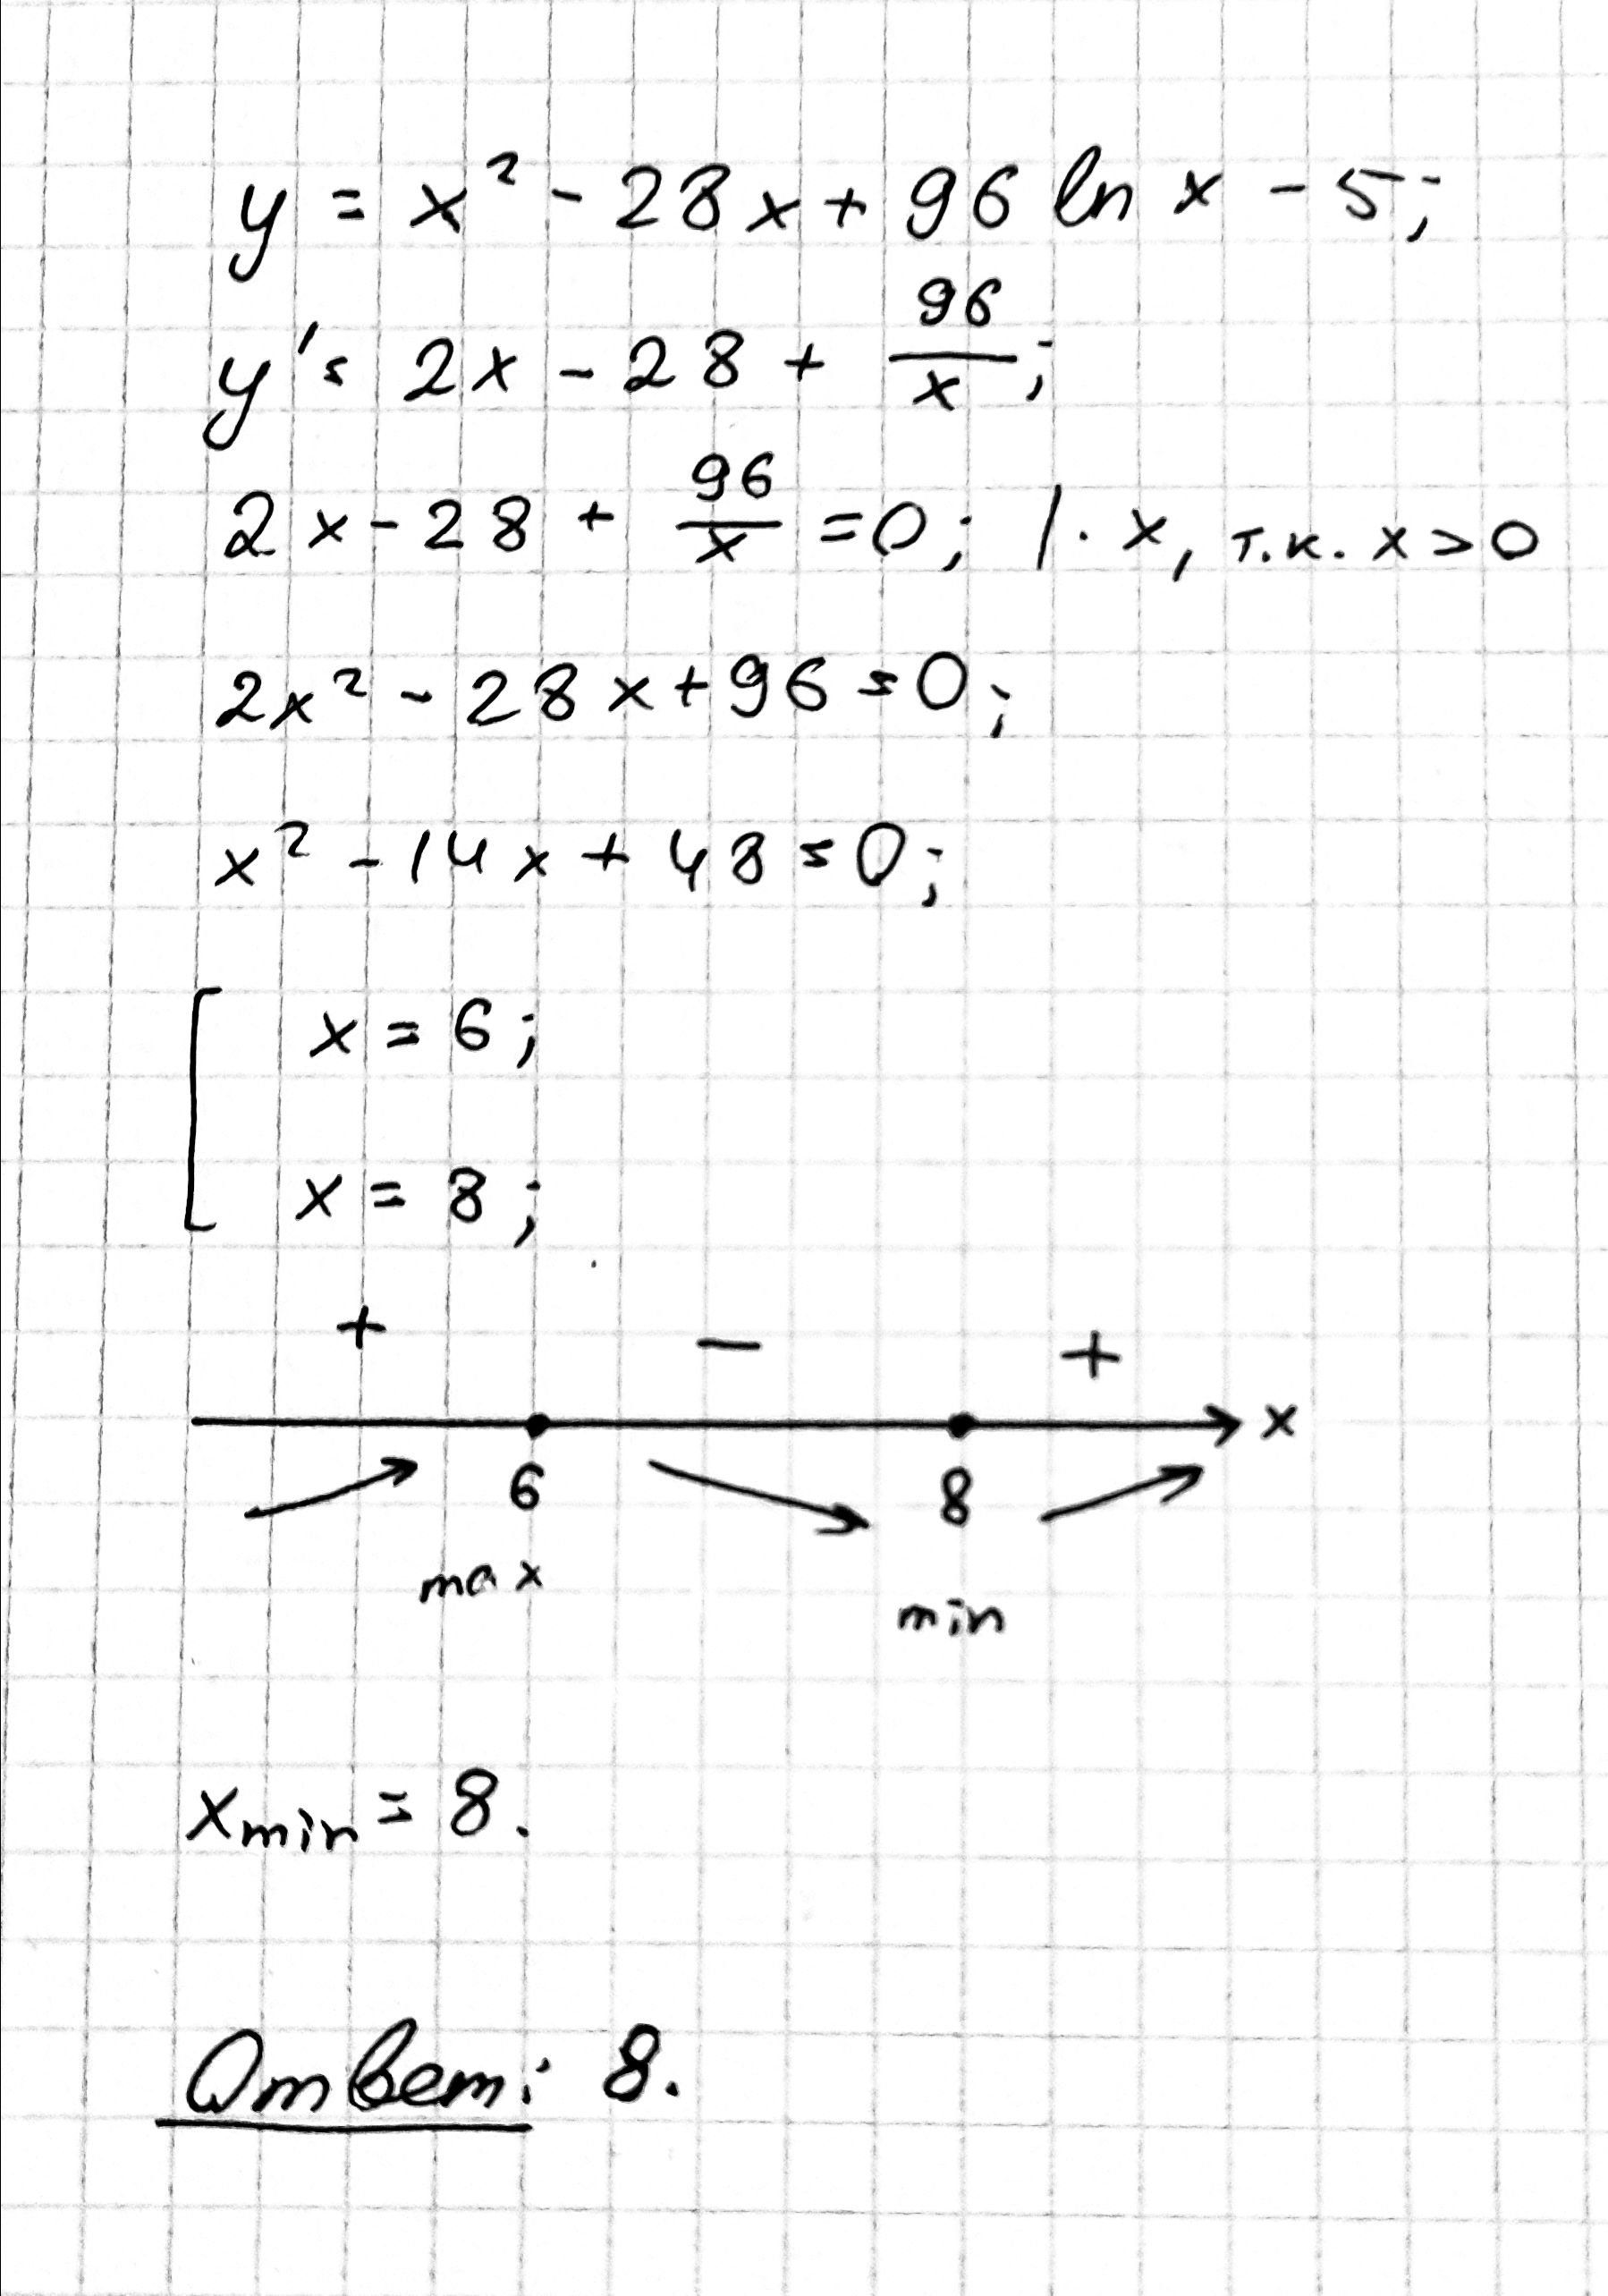 y = x² - 28x + 96 ln x - 5;
y' = 2x - 28 + 96/x;
2x - 28 + 96/x = 0; | · x, т.к. x > 0
2x² - 28x + 96 = 0;
x² - 14x + 48 = 0;
[ x = 6;
x = 8;
+ − +
6 8 x
max
min
xmin = 8.
Ответ: 8.